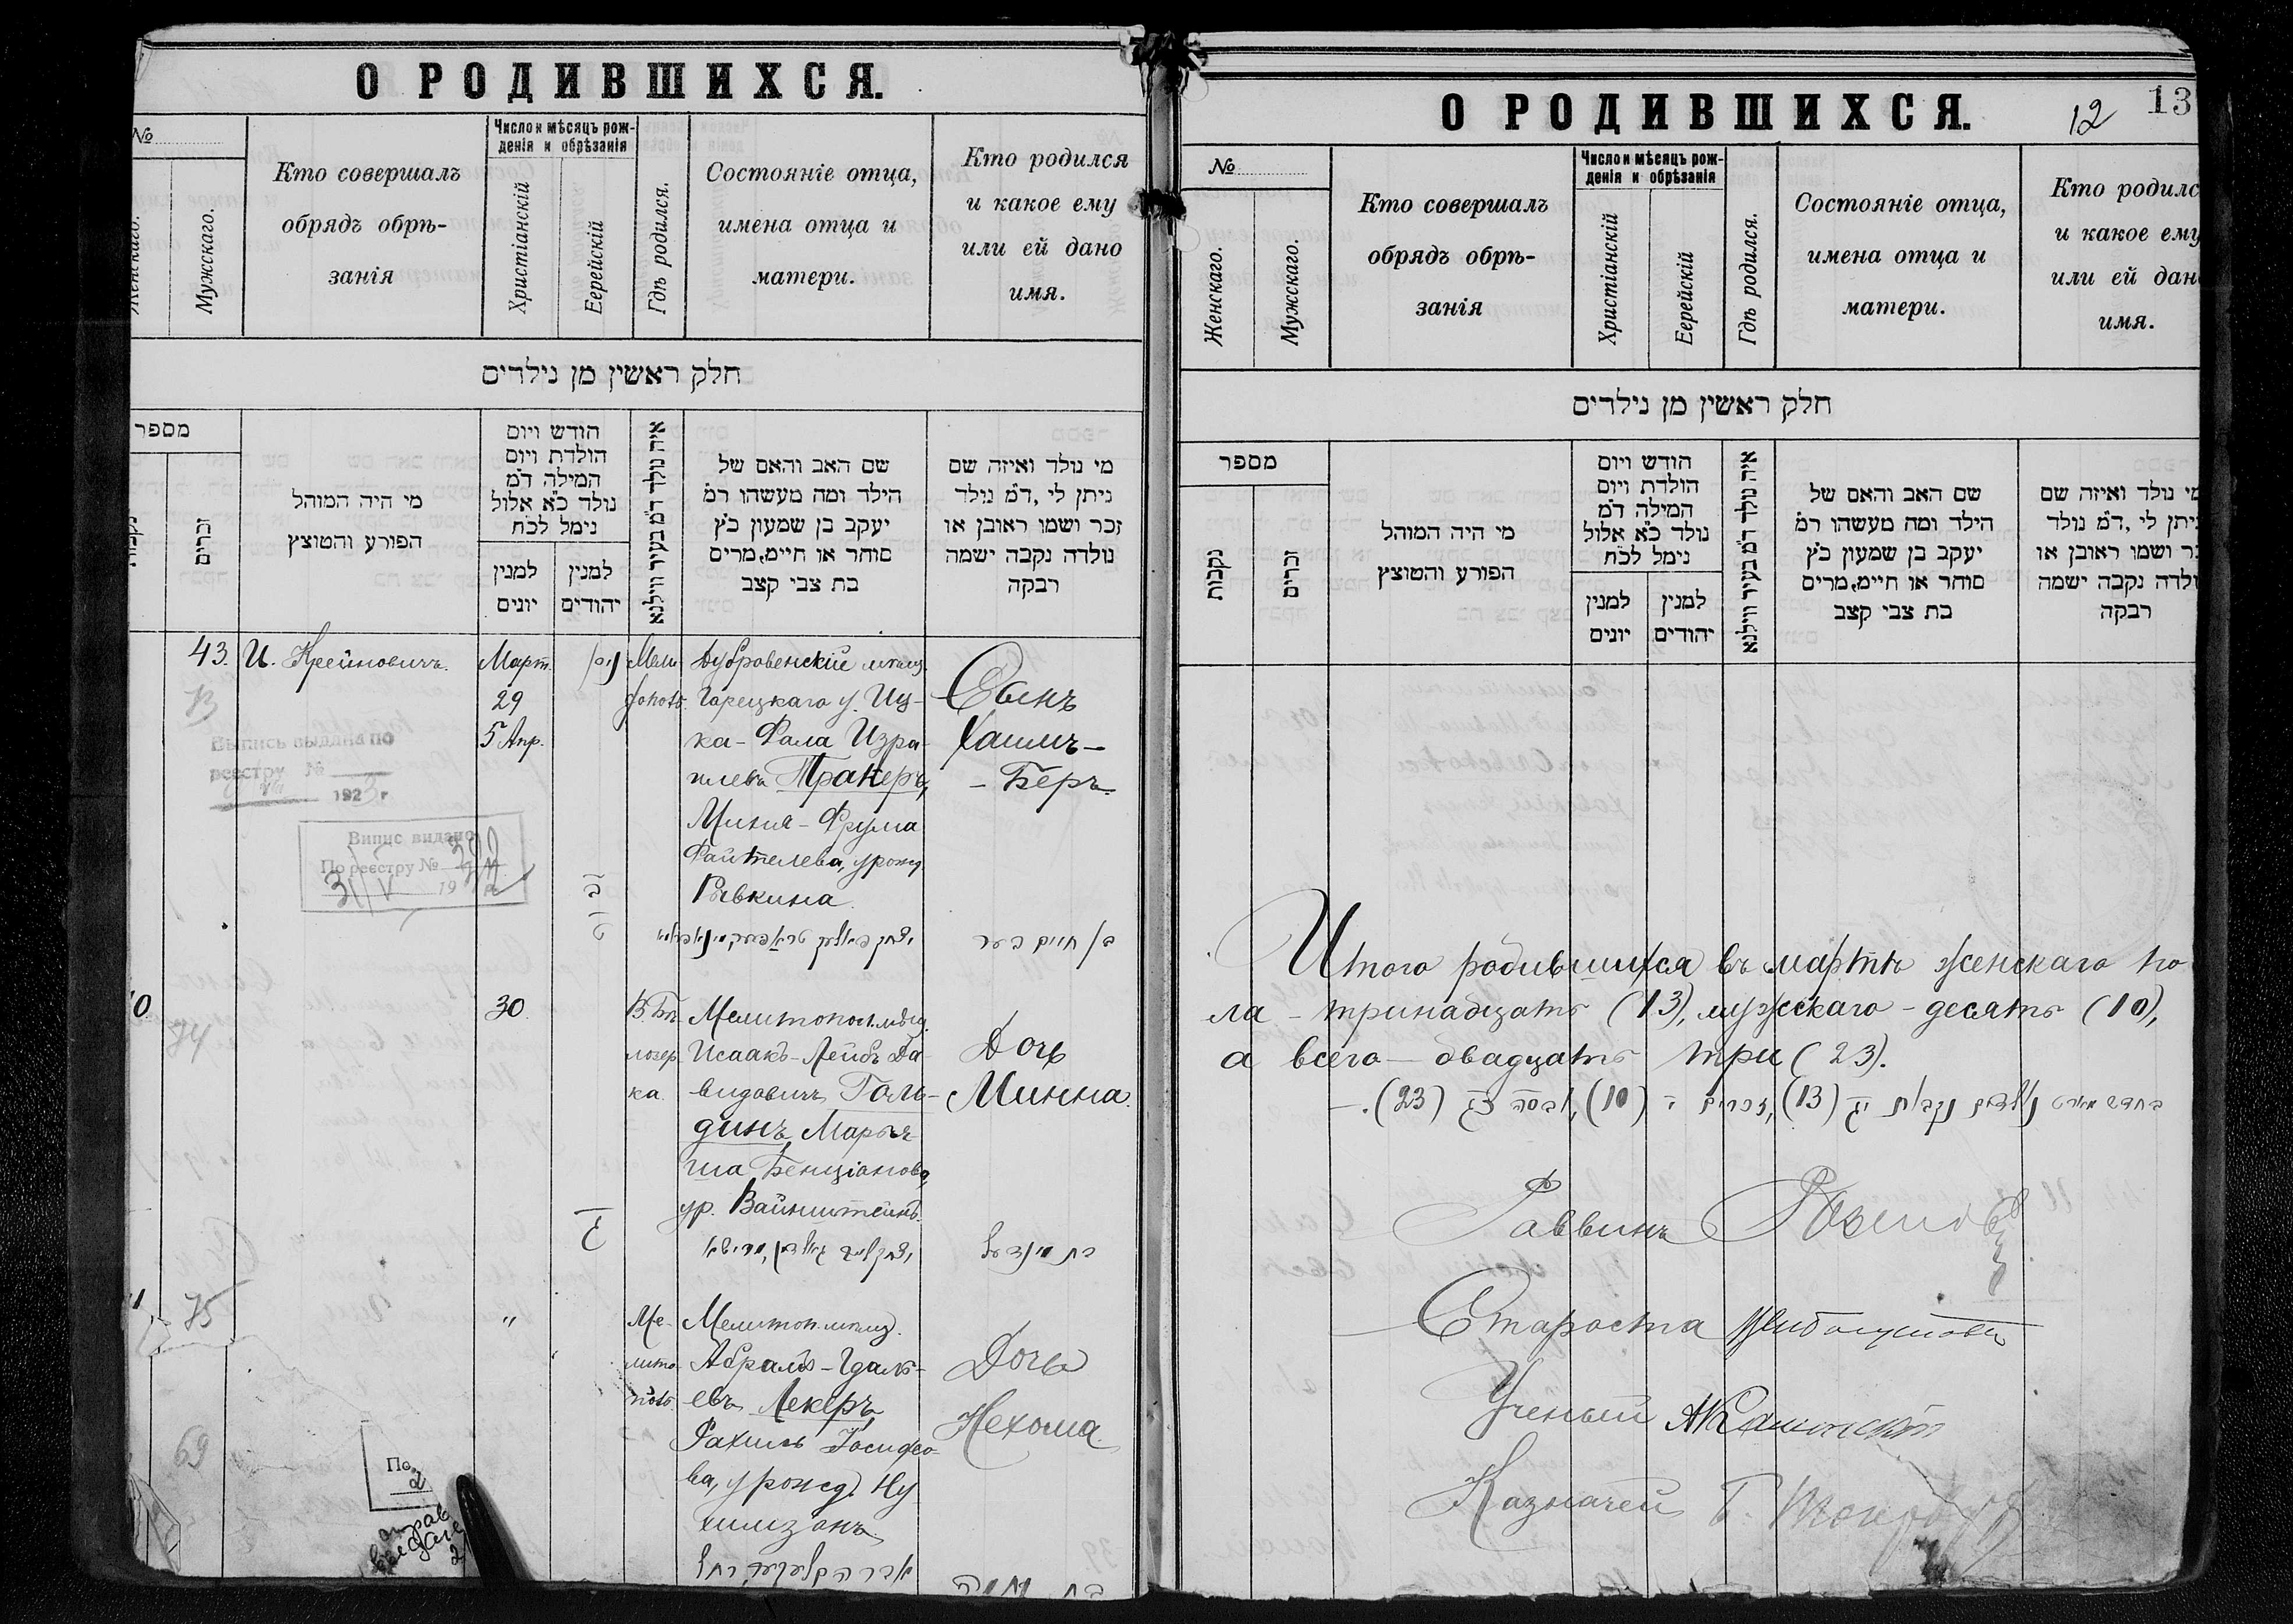 О РОДИВШИХСЯ.
№
Женскаго.
Мужскаго.
Кто совершалъ
обрядъ обрѣ-
занія
Число и мѣсяцъ рож-
денія и обрѣзанія
Христіанскій
Еерейскій
Гдѣ родился.
Состояніе отца,
имена отца и
матери.
Кто родился
и какое ему
или ей дано
имя.
חלק ראשין מן נילדים
מספר
זכרים
מי היה המוהל
הפורע והטוצץ
הודש ויום
הולדת ויום
המילה ד״מ
נולד כ״א אלול
נימל לכ״ח
למנין
יונים
למנין
יהודים
איה נולד ד״מ בעיר ווילנא
שם האב והאם של
הילד ומה מעשהו ר״מ
יעקב בן שמעון כ״ץ
סוחר או חיים, מרים
בת צבי קצב
מי נולד ואיזה שם
ניתן לי, ד״מ נולד
זכר ושמו ראובן או
נולדה נקבה ישמה
רבקה
43.
73
И. Крейновичъ.
Март.
29
5 Апр.
Мели
Дубровенскій мѣщ.
Горецкаго у. Иц-
ка-Фала Изра-
илевъ Тракеръ,
Миня-Фрума
Файтелева, урожд.
Рывкина
Сынъ
Хаимъ-
-Беръ
בן חיים בער
Выпись выдана по
реестру №
192 г
Випис видано
По реєстру №
31/V 19
0.
74
30
Мелитопол. мѣщ.
Исаакъ-Лейбъ Да-
видовичъ Голь-
динъ, Марья-
ша Бенціанова,
ур. Вайнштейнъ.
Дочь
Минна.
1
75
"
Ме-
лито-
поль.
Мелитоп. мѣщ.
Абрамъ-Гдаль-
евъ Лекеръ,
Рахиль Іосифо-
ва, урожд. Ну
Дочь
Нехома
69
По
2
О РОДИВШИХСЯ.
12
13
№
Женскаго.
Мужскаго.
Кто совершалъ
обрядъ обрѣ-
занія
Число и мѣсяцъ рож-
денія и обрѣзанія
Христіанскій
Еерейскій
Гдѣ родился.
Состояніе отца,
имена отца и
матери.
Кто родилс
и какое ему
или ей дан
имя.
חלק ראשין מן נילדים
מספר
נקבות
זכרים
מי היה המוהל
הפורע והטוצץ
הודש ויום
הולדת ויום
המילה ד״מ
נולד כ״א אלול
נימל לכ״ח
למנין
יונים
למנין
יהודים
איה נולד ד״מ בעיר ווילנא
שם האב והאם של
הילד ומה מעשהו ר״מ
יעקב בן שמעון כ״ץ
סוחר או חיים, מרים
בת צבי קצב
מי נולד ואיזה שם
ניתן לי, ד״מ נולד
זכר ושמו ראובן או
נולדה נקבה ישמה
רבקה
Итого родившихся въ мартѣ женскаго по
ла - тринадцать (13), мужскаго - десять (10),
а всего - двадцать три (23).
בחדש מארט נולדים נקבות י״ג (13), זכרים י׳ (10), ובסה כ״ג (23).-
Раввинъ
Староста
Ученый
Казначей